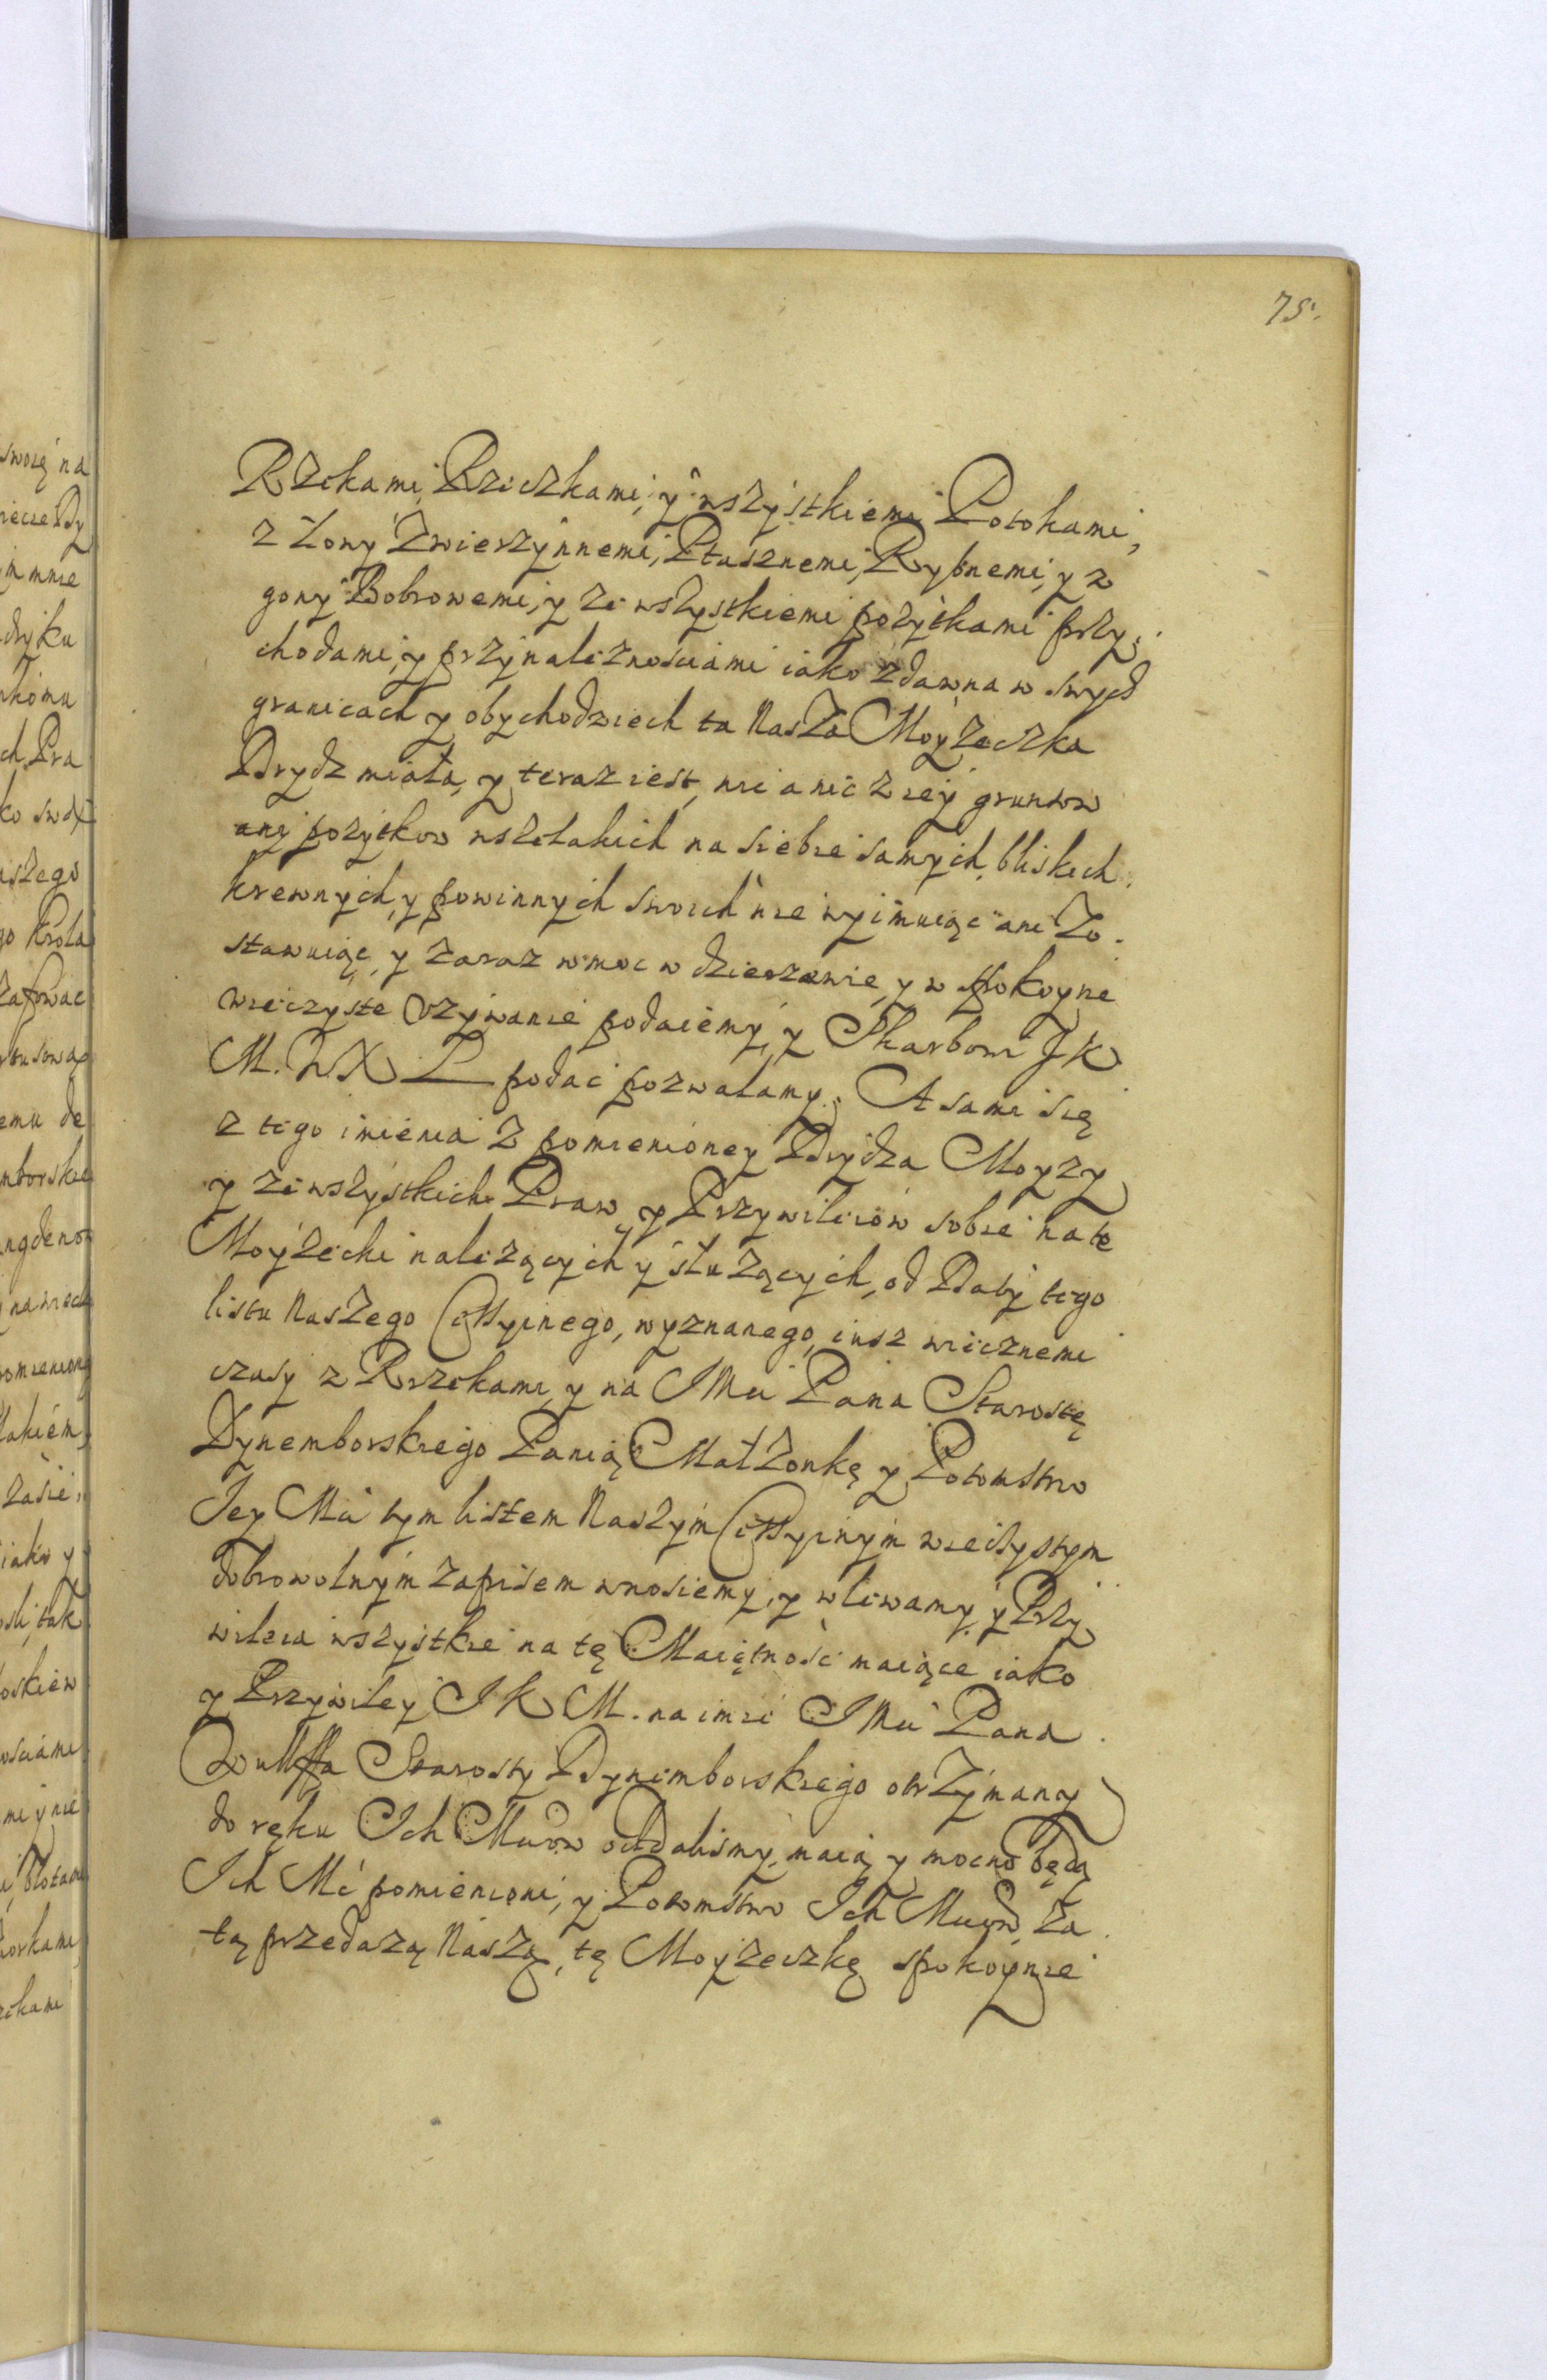 75.
Rzekami, Rzeczkami, y wszystkiemi Potokami,
z Łowy Zwierzynnemi, Ptasznemi, Rybnemi, y z
gony Bobrowemi, y ze wszystkiemi pożytkami przy,
chodami, y przynaleznosciami iako zdawna w swych
granicach y obychodziech ta Nasza Moyżeczka
Drydz miała, y teraz iest, nic a nic z iey gruntow
any pożytkow wszelakich na siebie samych, bliskich,
krewnych, y powinnych swoich nie wyimuiąc ani zo.
stawuiąc, y zaraz w moc w dzierzawie, y w spokoyne
wieczyste Vżywanie podaiemy, y Skarbowi J K
M. W X L podac pozwalamy. A sami się
z tego imienia z pomienioney Drydza Moyzy
y ze wszystkich Praw, y Przywileiow sobie na te
Moyżecki należących y służących, od Daty tego
listu Naszego Cessyinego, wyznanego, iusz wiecznemi
czasy z Rrzekamy, y na JMci Pana Starostę
Dynemborskiego Panią Małżonkę y Potomstwo
Jey Mci tym listem Naszym Cessyinym wieczystym
dobrowolnym zapisem wnosiemy, y wlewamy, y Przy
wileia wszystkie na tę Maiętnośc maiące iako
y Przywiley J K M. na imie JMci Pana
Wulffa Starosty Dynemborskiego otrzymany
do ręku Ich Mciow oddalismy, maią y mocno będą
Ich Mć pomienioni, y Potomstwo Ich Mciow, za
tą przedażą Naszą, tę Moyżeczkę spokoynie
swoię na
mnie
dryku
ch Pra
ko
aszego
go Krola
emu de
mborskie
na wiecz
pomieniong
zasie
iako y
tak
osciami
my y nie
błotami